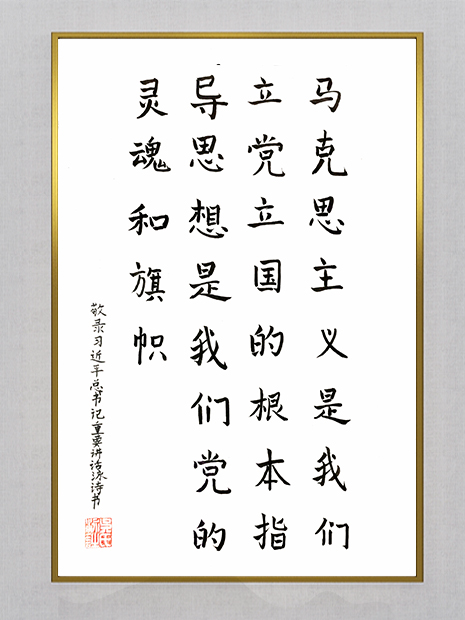 马克思主义是我们
立党立国的根本指
导思想是我们党的
灵魂和旗帜
敬录习近平总书记重要讲话泳诗书